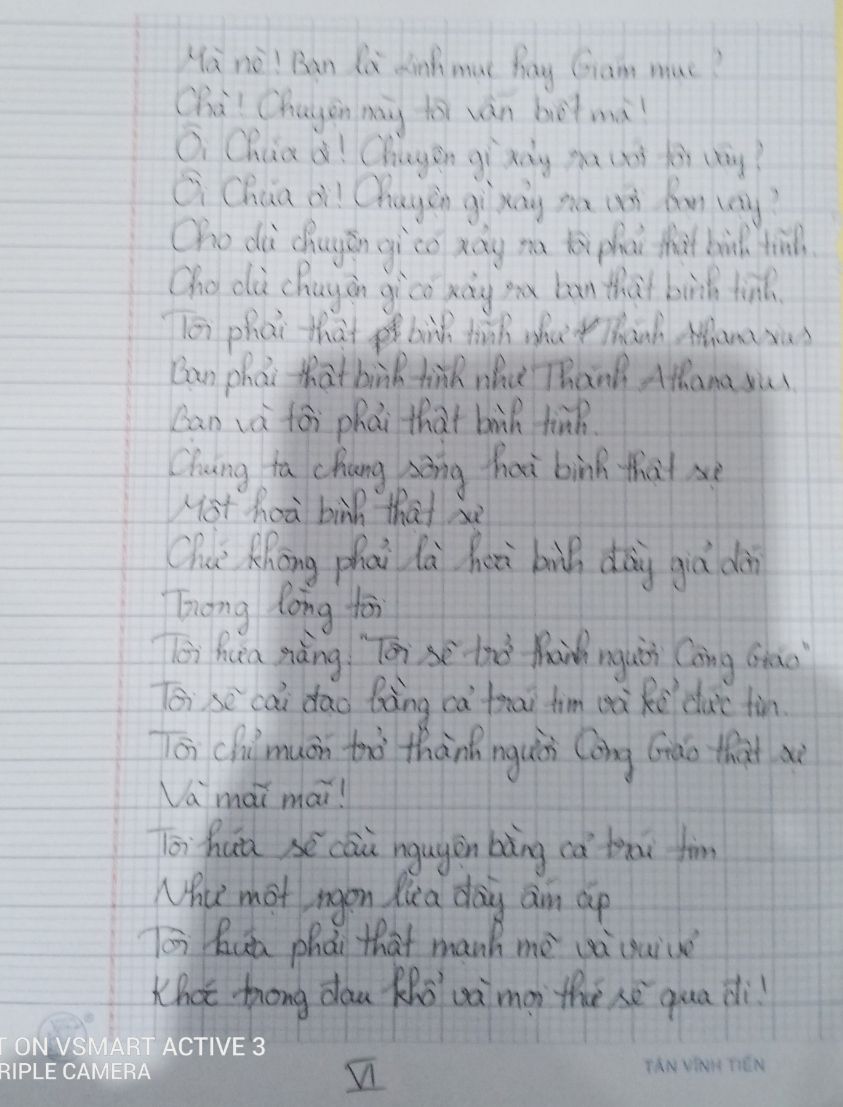 Mà nè! Bạn là Linh mục hay Giám mục?
Chà! Chuyện này tôi vẫn biết mà!
Ôi Chúa ơi! Chuyện gì xảy ra với tôi vậy?
Ôi Chúa ơi! Chuyện gì xảy ra với bạn vậy?
Cho dù chuyện gì có xảy ra tôi phải thật bình tĩnh.
Cho dù chuyện gì có xảy ra bạn thật bình tĩnh.
Tôi phải thật bình tĩnh như Thánh Athanaxius
Bạn phải thật bình tĩnh như Thánh Athanaxius.
Bạn và tôi phải thật bình tĩnh.
Chúng ta chung sống hoà bình thật sự
Một hoà bình thật sự
Chứ không phải là hoà bình đầy giả dối
Trong lòng tôi
Tôi hứa rằng: "Tôi sẽ trở thành người Công Giáo"
Tôi sẽ cải đạo bằng cả trái tim và kể đức tin.
Tôi chỉ muốn trở thành người Công Giáo thật sự
Và mãi mãi!
Tôi hứa sẽ cầu nguyện bằng cả trái tim
Như một ngọn lửa đầy ấm áp
Tôi hứa phải thật mạnh mẽ và vui vẻ
Khóc trong đau khổ và mọi thứ sẽ qua đi!
T ON VSMART ACTIVE 3
RIPLE CAMERA
VI
TÂN VĨNH TIẾN